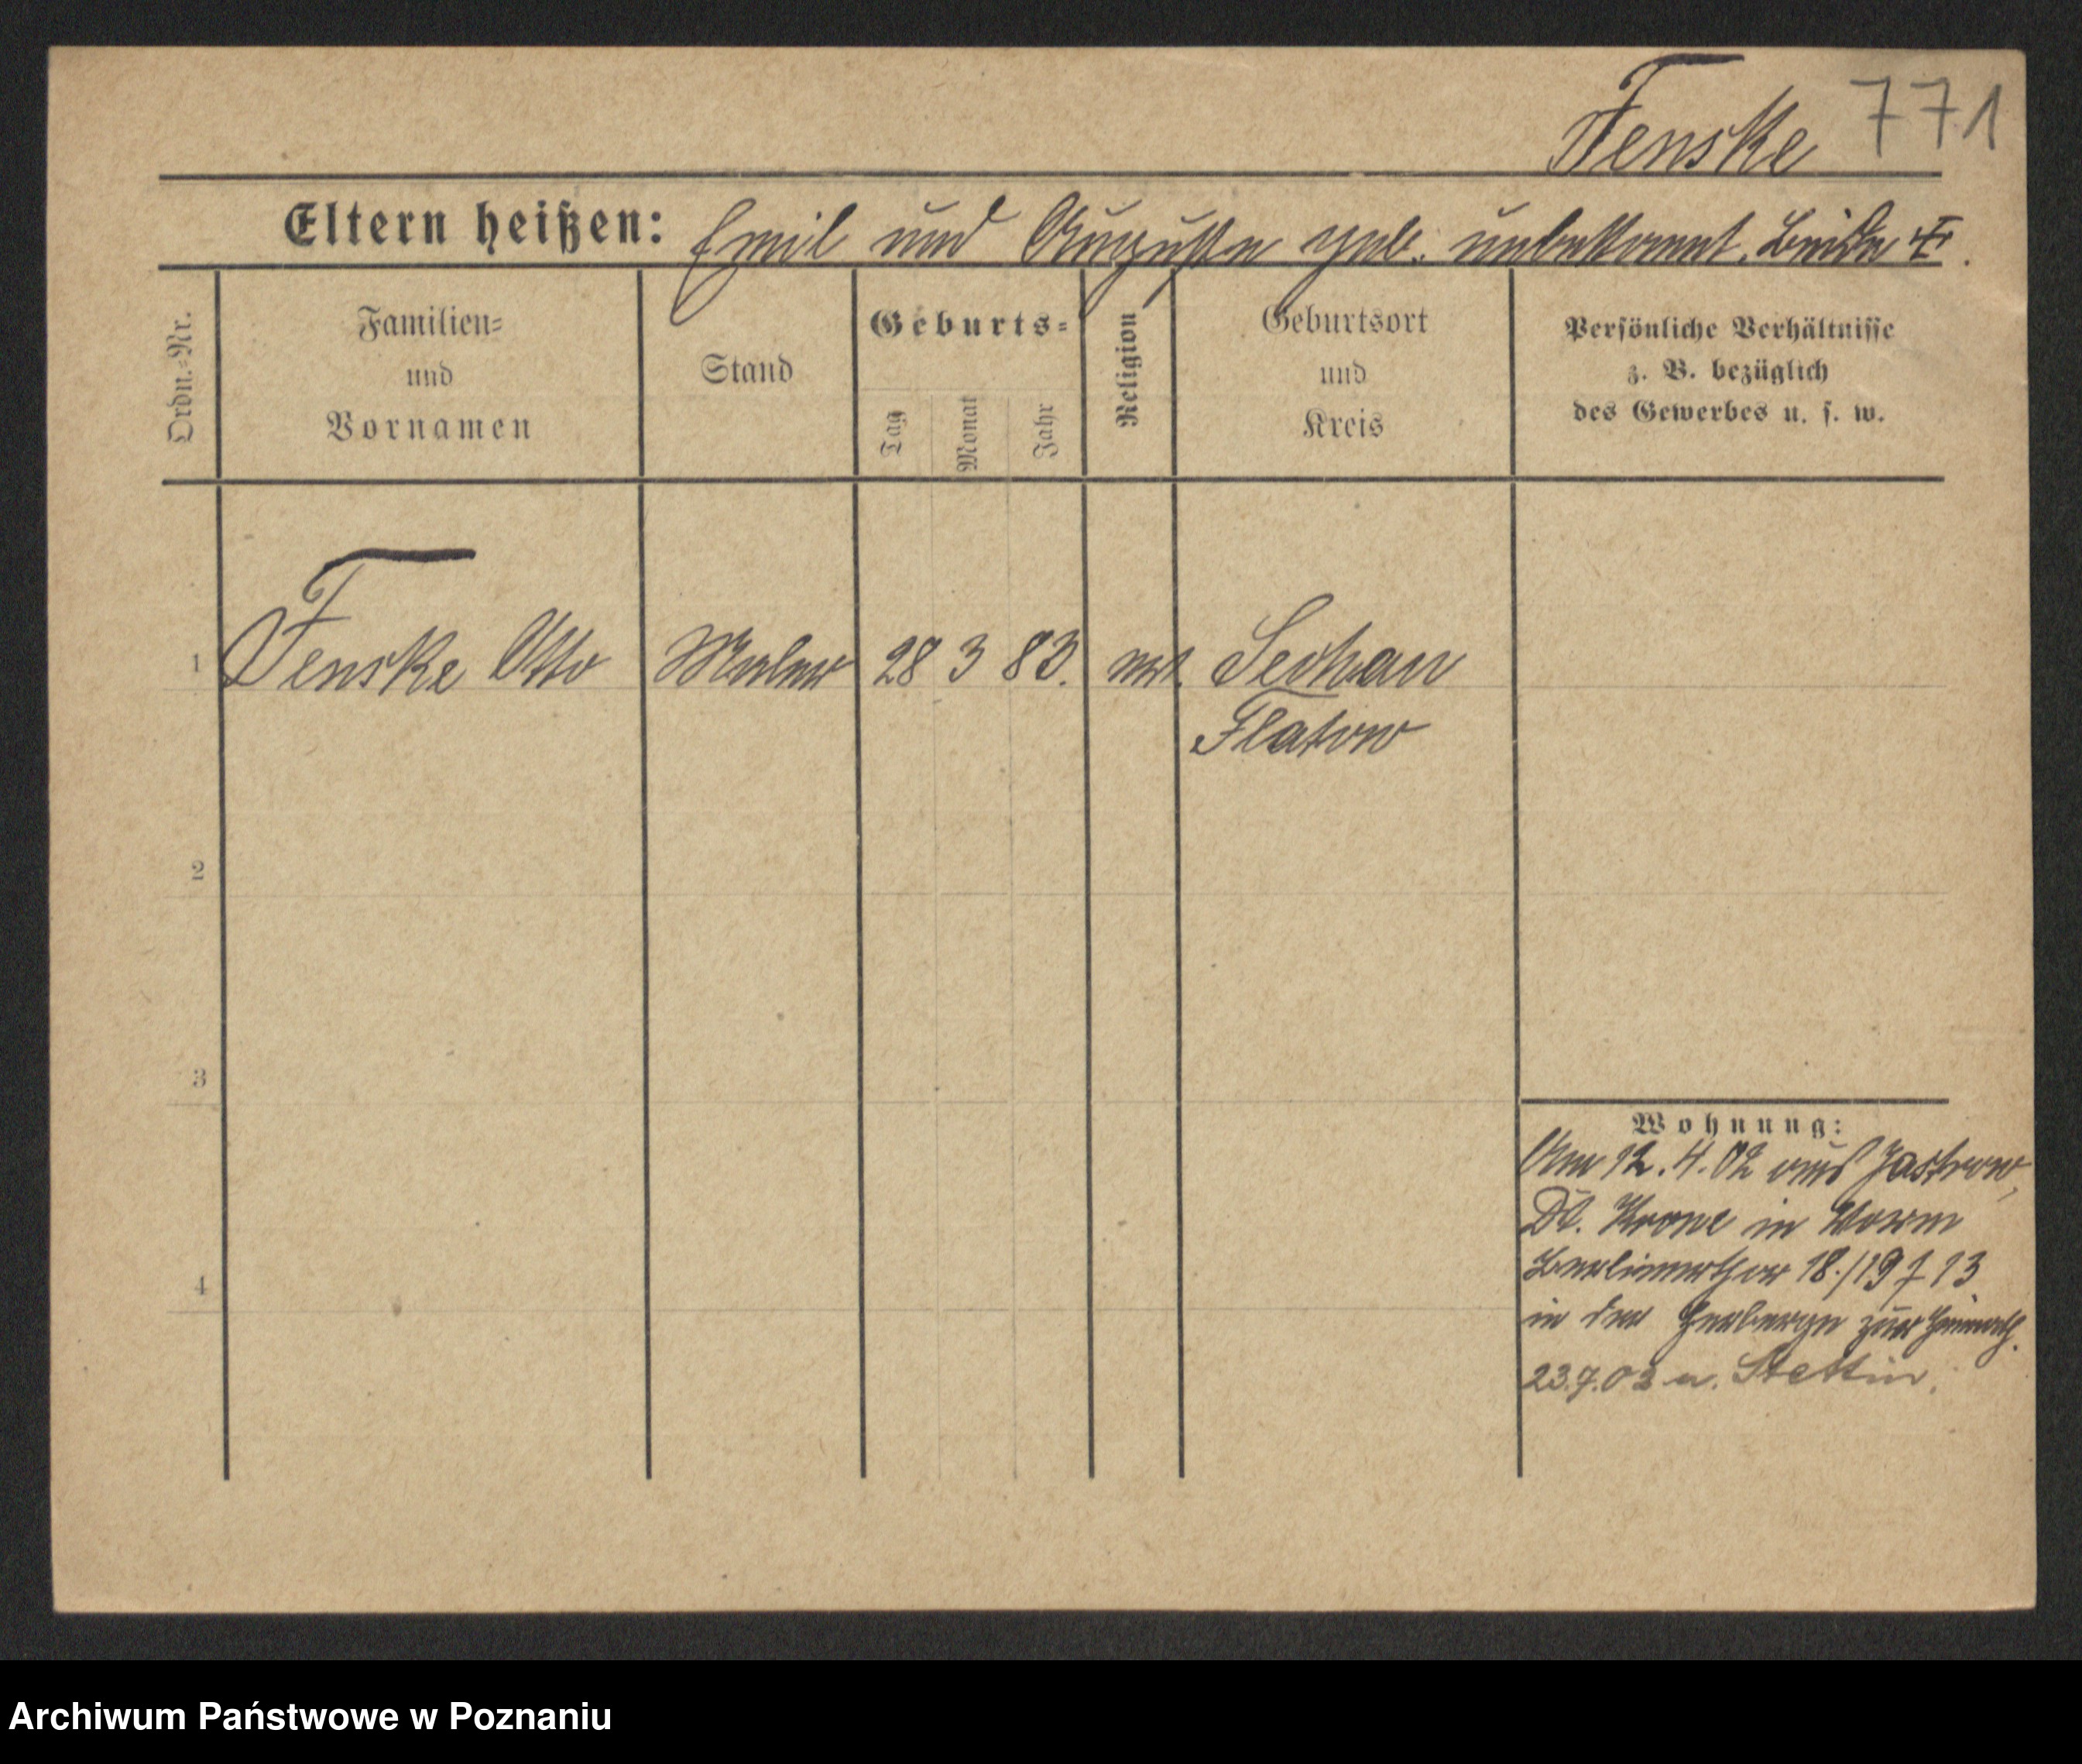 Fenske 771
Eltern heißen: Emil und Auguste geb. unbekannt. Beide †.
Ordn.=Nr.
Familien=
und
Vornamen
Stand
Geburts=
Tag
Monat
Jahr
Religion
Geburtsort
und
Kreis
Persönliche Verhältnisse
z. B. bezüglich
des Gewerbes u. s. w.
1 Fenske Otto Maler 28 3 83. Sechau
Flatow
2
3
4
Wohnung:
Am 12.4.02 aus Jastrow,
Dt. Krone in Worm
Berlinerthor 18./19 f 13
in der Herberge zur Heimath.
23.7.03 n. Stettin.
Archiwum Państwowe w Poznaniu